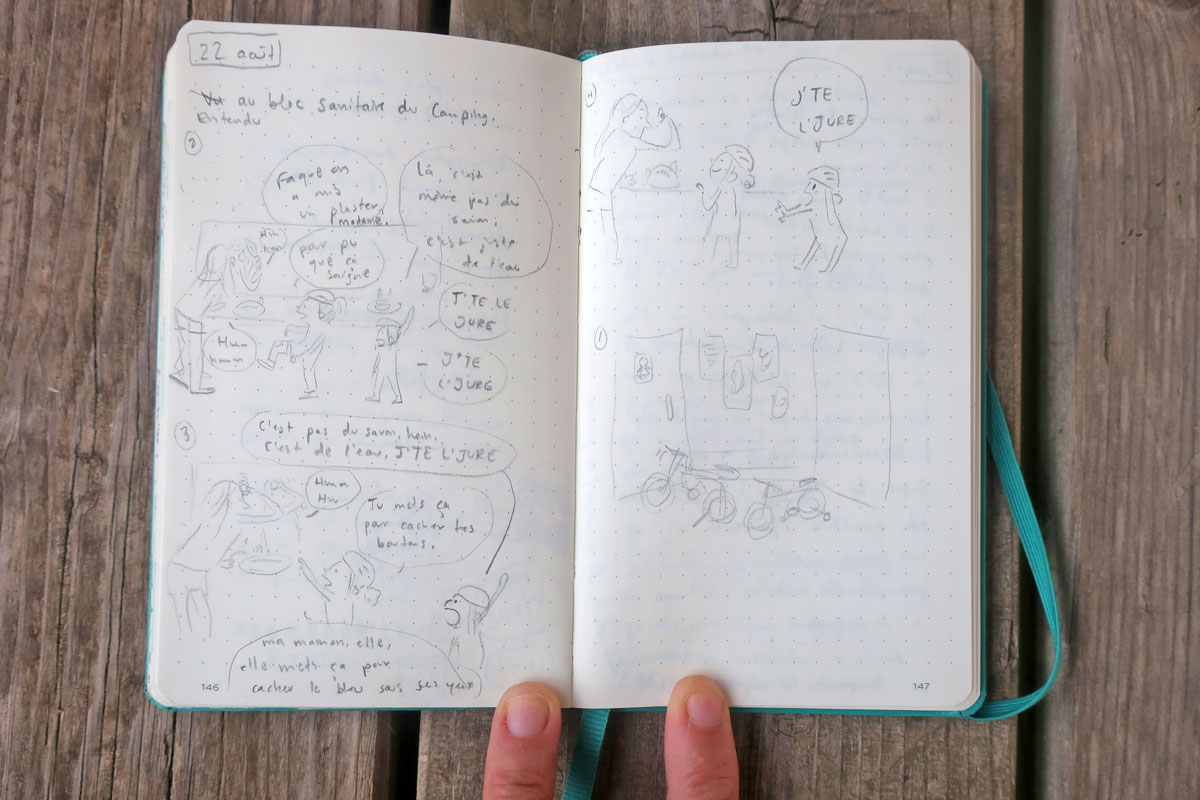 22 août
Vu au bloc sanitaire du Camping.
Entendu
2
Faque on
a mis
un plaster,
madame.
Là, c'est
même pas du
savon;
c'est juste
de l'eau
Hm
hum
pour pu
que ça
saigne
J'TE LE
JURE
Hum
hmmm
- J'TE
L'JURE
3
C'est pas du savon, hein,
C'est de l'eau, J'TE L'JURE
Hmm
Hm
Tu mets ça
pour cacher tes
boutons.
ma maman, elle,
elle mets ça pour
cacher le bleu sous ses yeux
146
4
J'TE
L'JURE
1
147